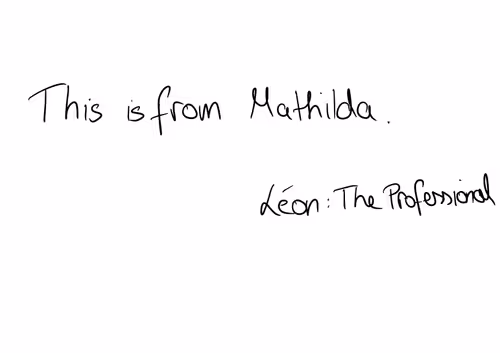 This is from Mathilda.
Léon: The Professional